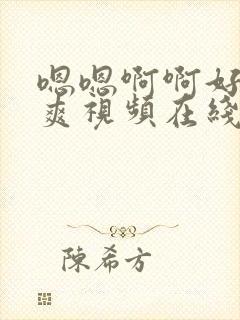 嗯嗯啊啊好
爽視頻在綫
陳希方